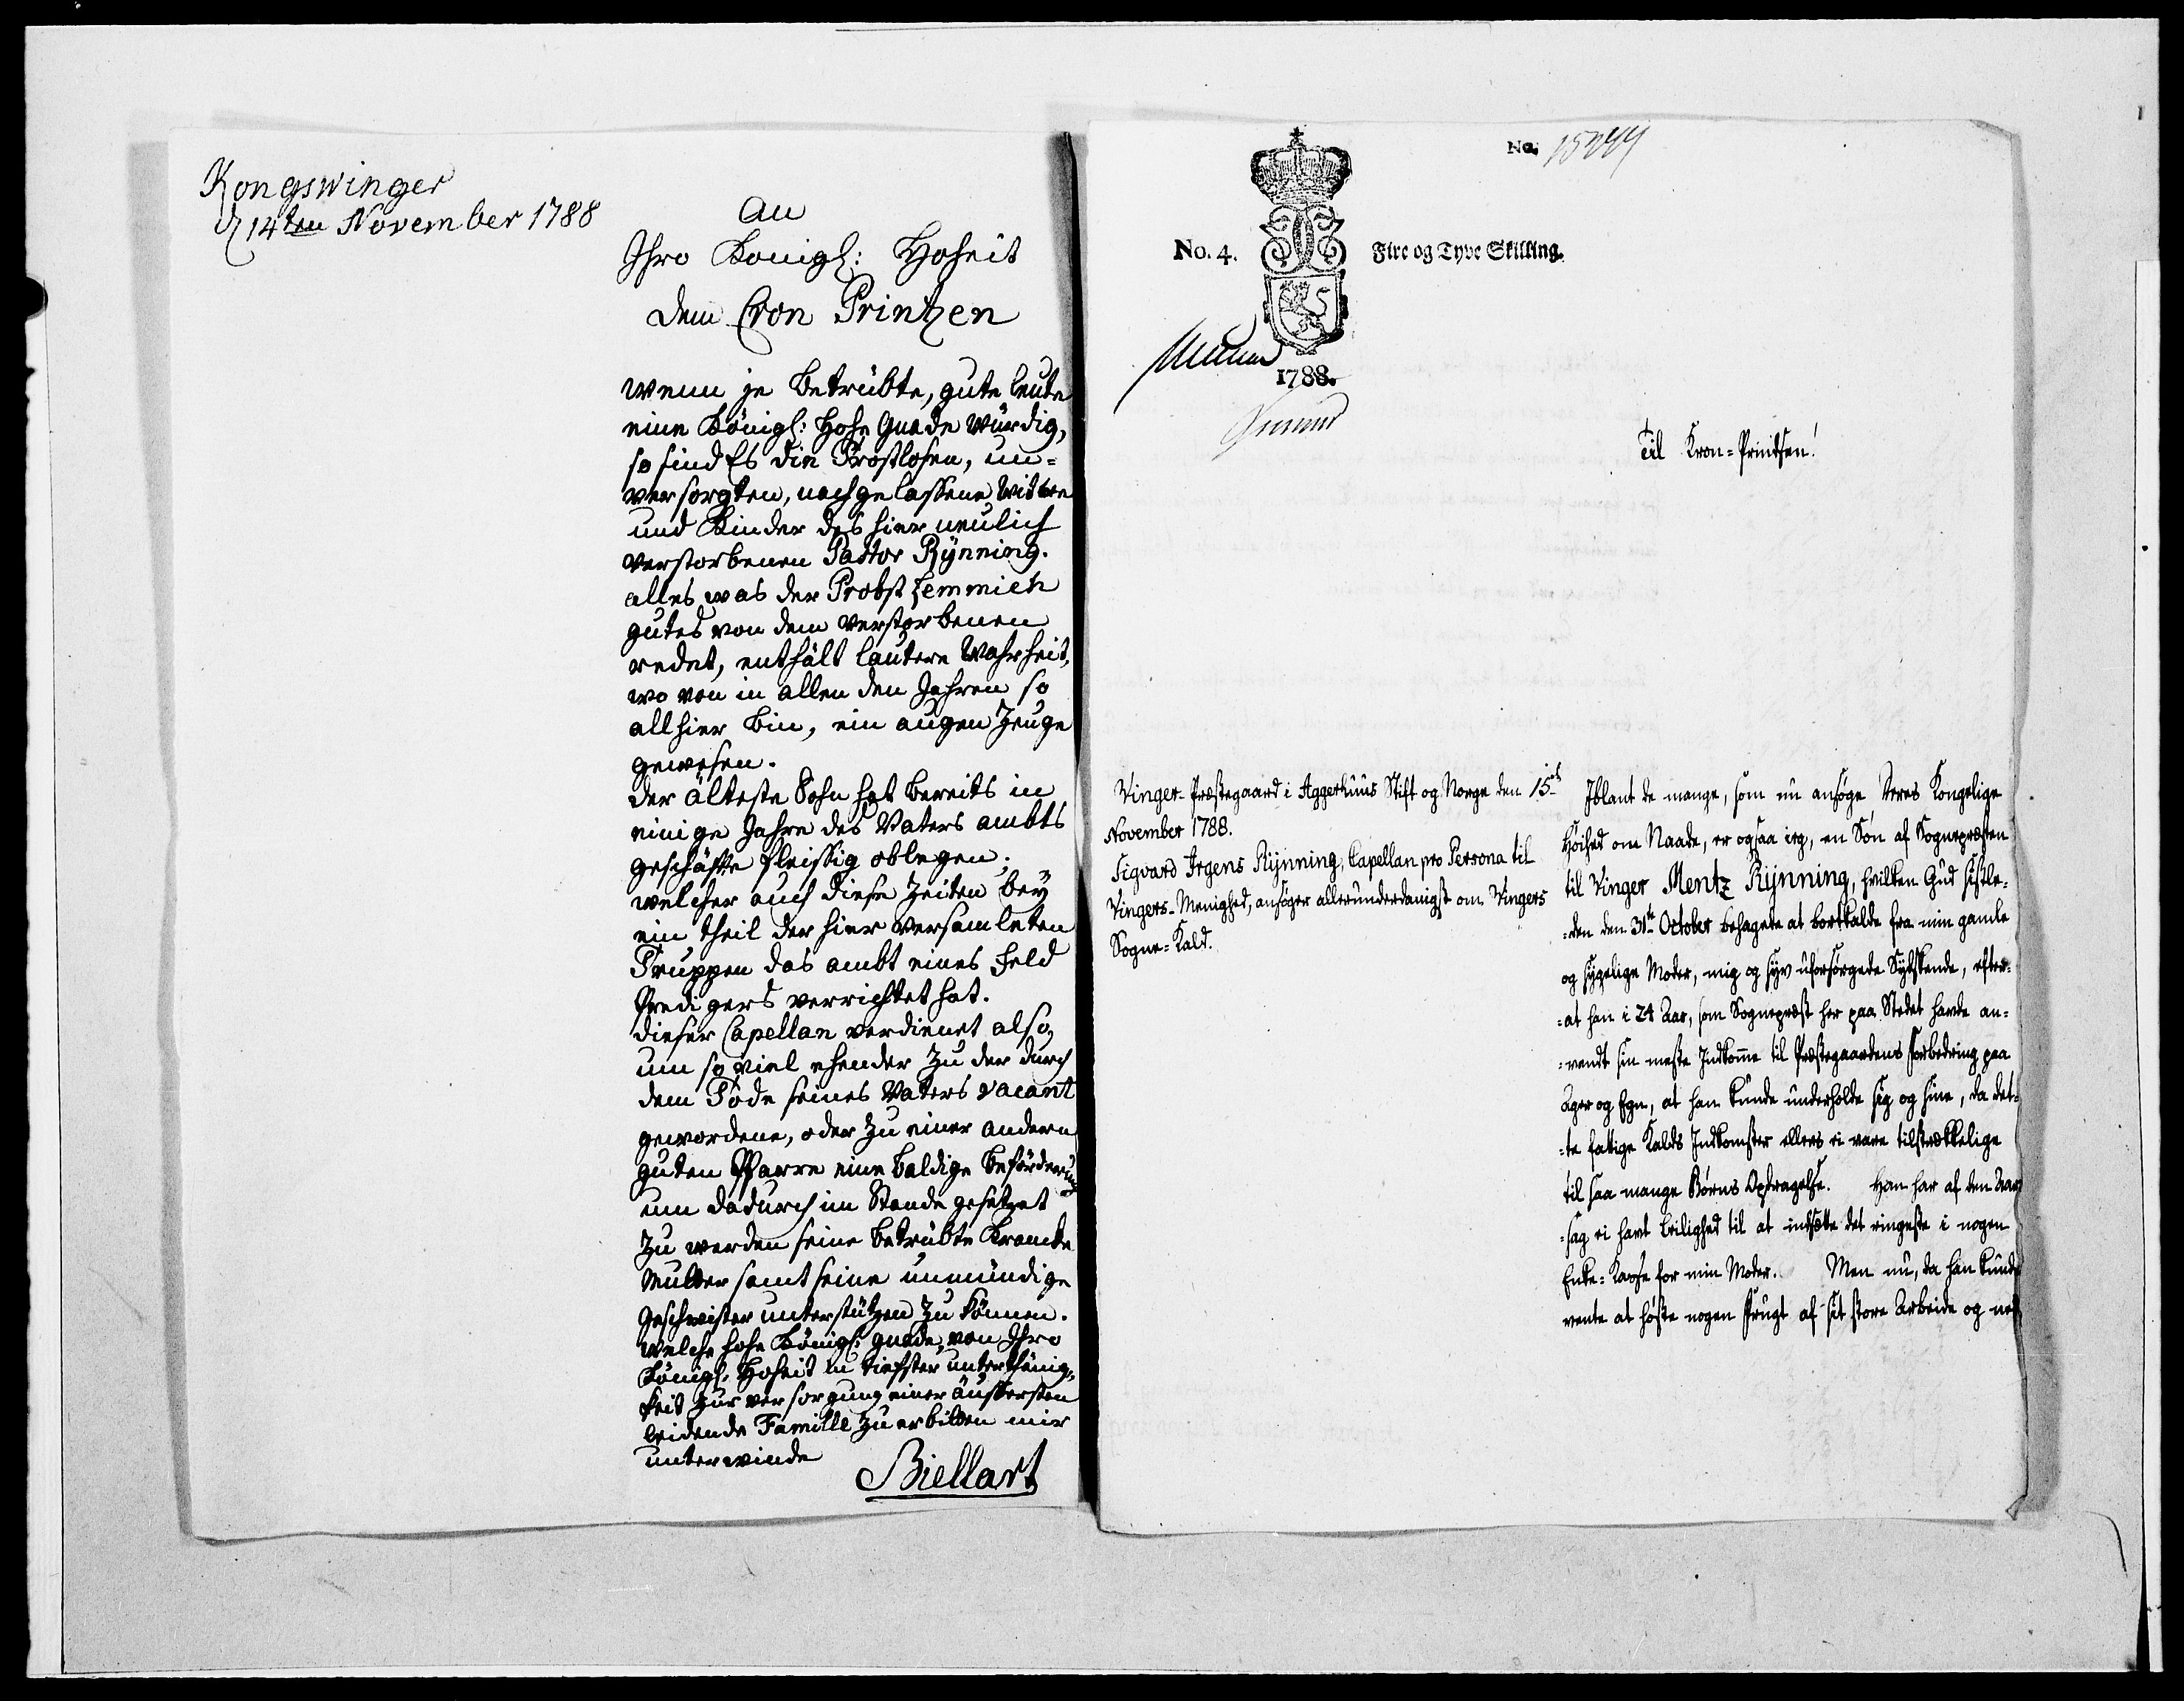 Kongswinger
d 14ten November 1788
An
Ihro Königl: Hoheit
dem Cron Printzen
wenn je betrübte, gute leute
eine Königl: Hohe Gnade würdig,
so sind Es die Trostlosen, un=
versorgten, nachgelassene Witwe
und Kinder des hier neulich
verstorbenen Pastor Rÿnning.
alles was der Probst Lemmich
gutes von dem verstorbenen
redet, enthält lautere Wahrheit,
wo von in allen den Jahren so
allhier bin, ein augen Zeuge
gewesen.
der älteste Sohn hat bereits in
einige Jahre des Vaters ambts
geschäfte fleissig oblegen;
welcher auch diese Zeiten beÿ
ein theil der hier versamleten
Truppen das ambt eines Feld
Predigers verrichtet hat.
dieser Capellan verdienet also,
um so viel ehender zu der durch
dem Tode seines Vaters vacant
gewordene, oder zu einer andern
guten Pfarre eine baldige beförderung
um dadurch im Stande gesetzet
zu werden seine betrübte Krancke
Mutter samt seine unmündige
Geschwister unterstützen zu können.
Welche hohe Königl: gnade, von Ihro
Königl: Hoheit in tiefster unterthänig=
keit zur versorgung einer äussersten
leidende Famille zu erbitten mir
unterwinde
Biellart
No. 15244
No. 4.
Fire og Tyve Skilling.
1788.
Til Kron=Printsen!
Vinger-Præstegaard i Aggerhuus Stift og Norge den 15de
November 1788.
Sigvard Irgens Rÿnning, Capellan pro Persona til
Vingers-Menighed, ansøger allerunderdanigst om Vingers
Sogne=Kald.
Iblant de mange, som nu ansøge Deres Kongelige
Høihed om Naade, er ogsaa ieg, en Søn af Sognepræsten
til Vinger Mentz Rÿnning, hvilken Gud sistle=
=den den 31te October behagede at bortkalde fra min gamle
og sygelige Moder, mig og syv uforsørgede Sydskende, efter=
=at han i 24 Aar, som Sognepræst her paa Stedet havde an=
=vendt sin meste Indkomme til Præstegaardens Forbedring paa
Ager og Eng, at han kunde underholde sig og sine, da det=
=te fattige Kalds Indkomster ellers ei vare tilstrækkelige
til saa mange Børns Opdragelse. Han har af den Aar=
=sag ei havt Leilighed til at indsætte det ringeste i nogen
Enke=Kasse for min Moder. Men nu, da han kunde
vente at høste nogen Frugt af sit store Arbeide og